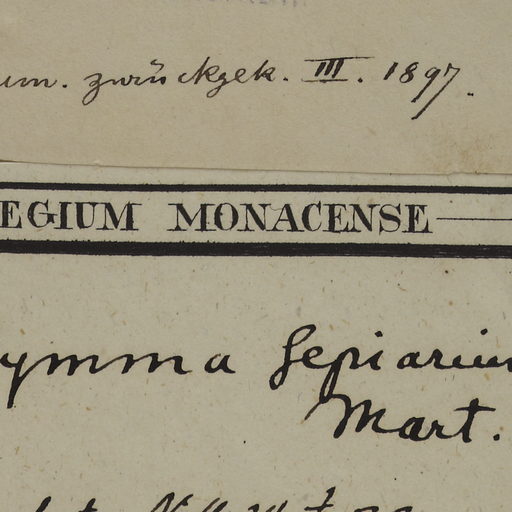 um. zurückgek. III. 1897.
EGIUM MONACENSE
ymma sepiarium
Mart.